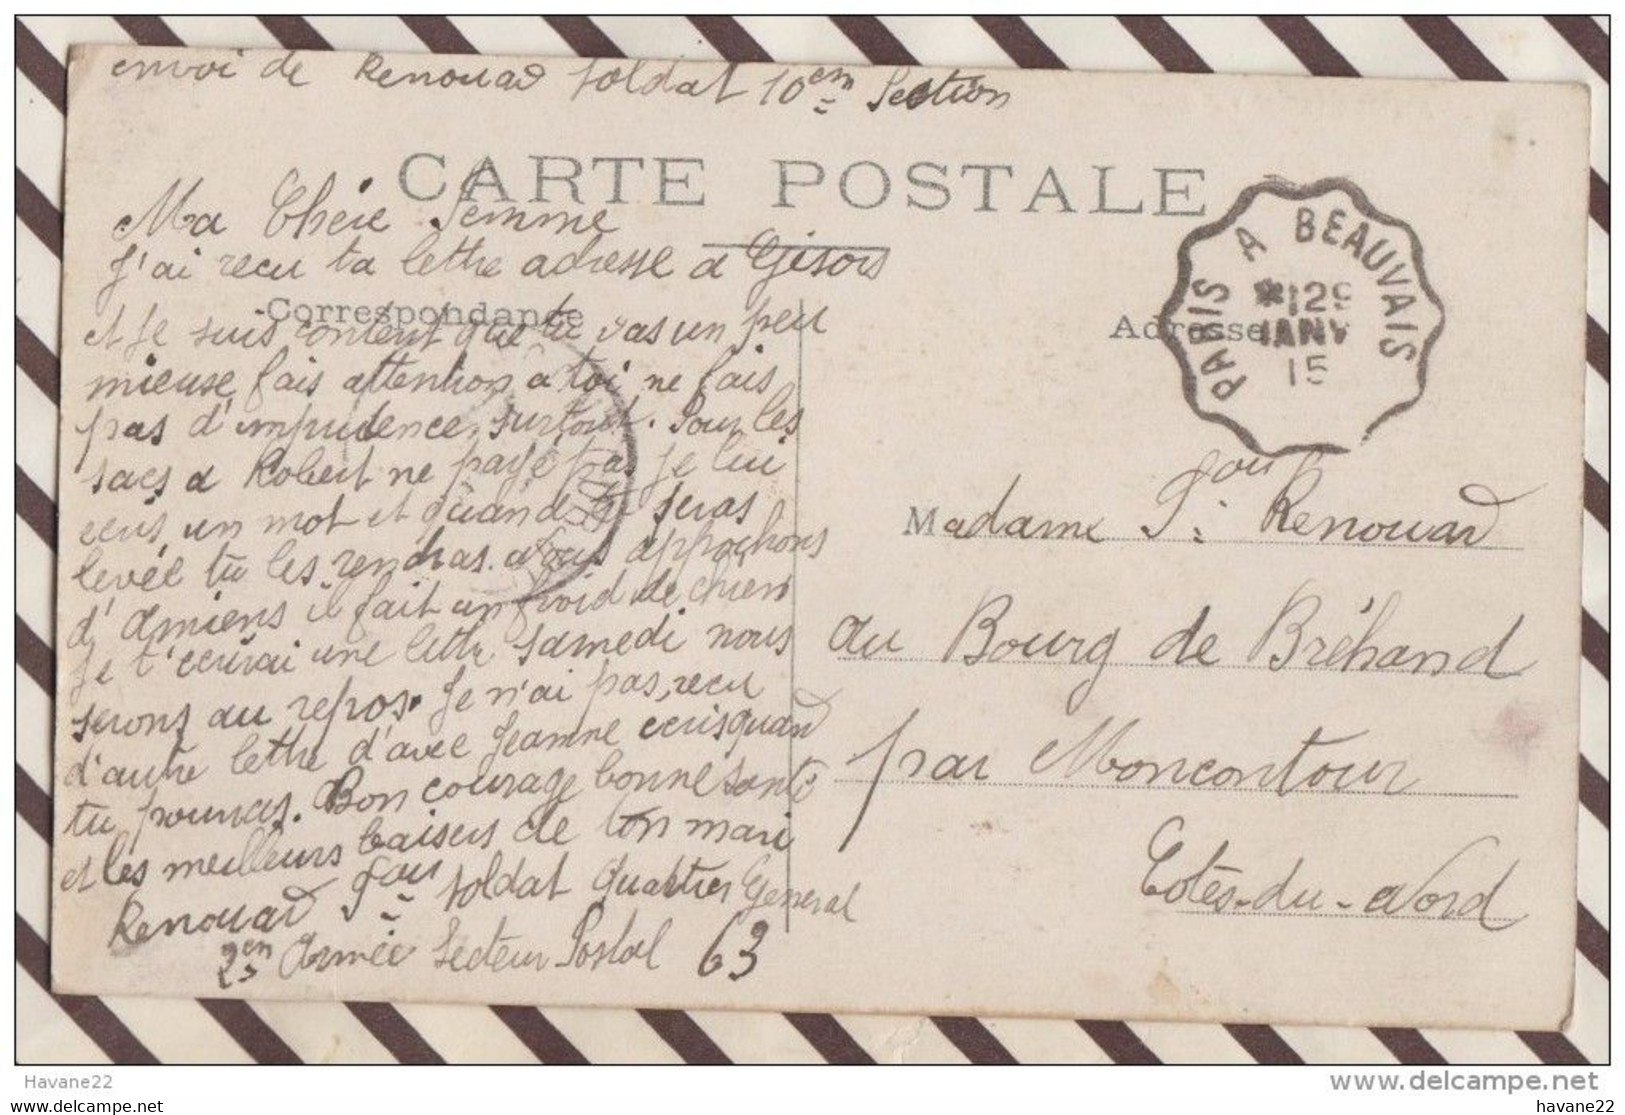 envoi de Renouard soldat 10em Section
CARTE POSTALE
Ma Chére Femme
J'ai recu ta lettre adresse a Gisors
Correspondance
et je suis content que tu vas un peu
mieuse fais attention a toi ne fais
pas d'imprudence surtout. Pour les
sacs a Robert ne paye pas je lui
ecris un mot et quand tu seras
levée tu les rendras nous approchons
d'Amiens il fait un froid de chien
Je t'ecrirai une lettre samedi nous
serons au repos. Je n'ai pas recu
d'autre lettre d'avec Jeanne ecris quand
tu pourras. Bon courage bonne santé
et les meilleurs baisers de ton mari
Renouard Fois soldat Quartier General
2em Armée Secteur Postal 63
PARIS A BEAUVAIS
*129
JANV
15
Adresse
Madame Fois Renouard
au Bourg de Bréhand
par Moncontour
Côtes-du-Nord
Havane22
www.delcampe.net
havane22